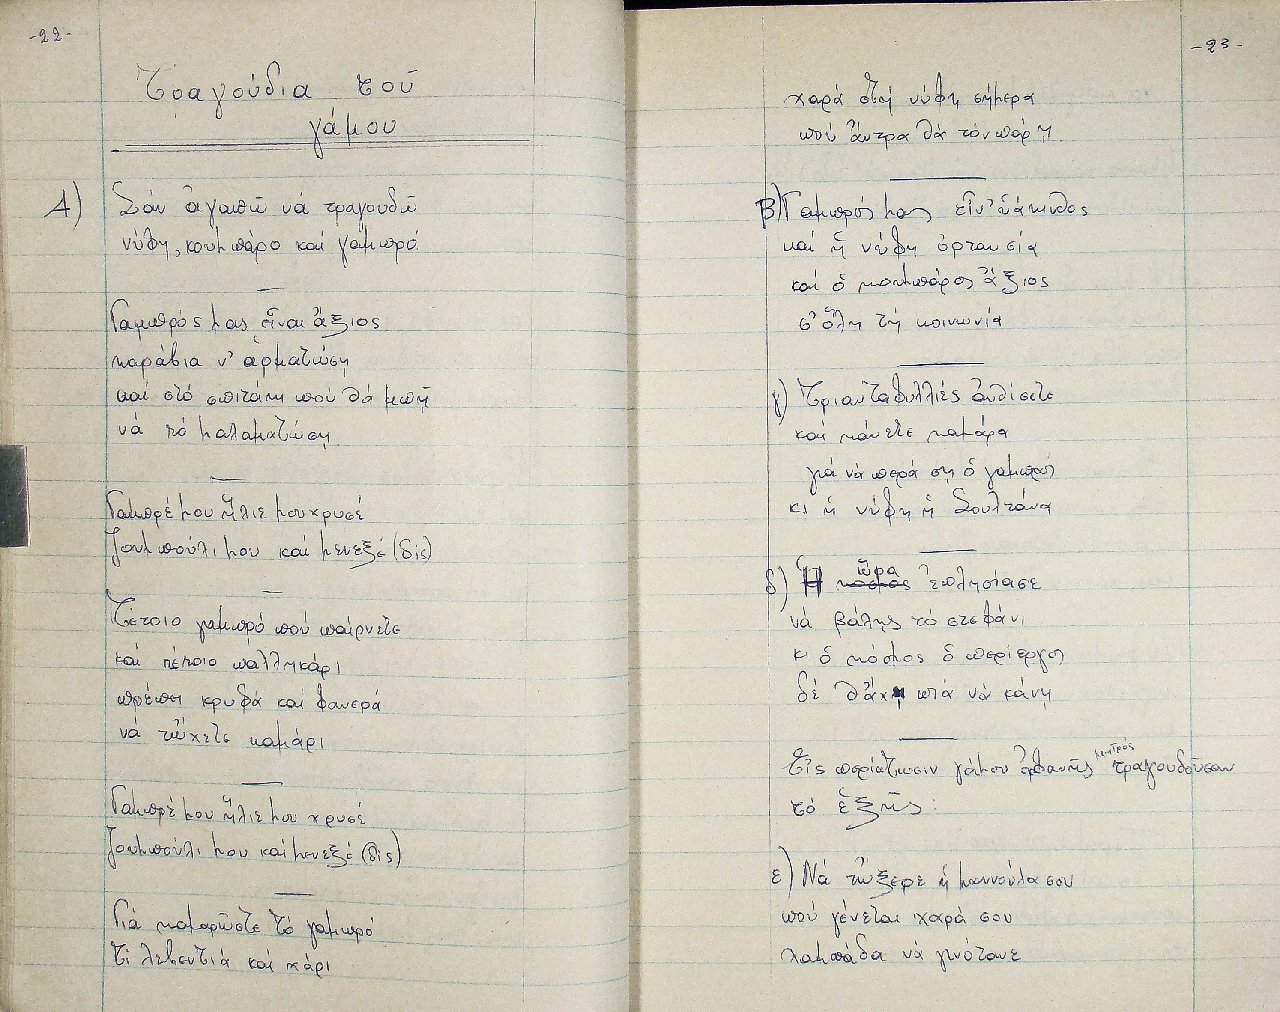 -22-
Τραγούδια τοῦ
γάμου
Α) Σάν ἀγαπῶ νά τραγουδῶ
νύφη, κουμπάρο καί γαμπρό
Γαμπρός μας εἶναι ἄξιος
καράβια ν' ἀρματώση
καί στό σπιτάκι πού θά μπῆ
νά τό μαλαματώση
Γαμπρέ μου ἥλιε μου χρυσέ
ζουμπούλι μου καί μενεξέ (δίς)
Τέτοιο γαμπρό πού παίρνετε
καί τέτοιο παλληκάρι
πρέπει κρυφά καί φανερά
νά τὤχετε καμάρι
Γαμπρέ μου ἥλιε μου χρυσέ
ζουμπούλι μου καί μενεξέ (δίς)
Γιά καμαρῶστε τό γαμπρό
τί λεβεντιά καί χάρι
-23-
χαρά στή νύφη σήμερα
πού ἄντρα θά τόν πάρη.
Β) Γαμπρός μας εἶν' ὑάκινθος
καί ἡ νύφη ὀρτανσία
καί ὁ κουμπάρος ἄξιος
σ' ὅλη τή κοινωνία
γ) Τριανταφυλλιές ἀνθίσετε
καί κάνετε καμάρα
γιά νά περάση ὁ γαμπρός
κι ἡ νύφη ἡ Σουλτάνα
δ) Ἡ κόσμος ὥρα ἐπλησίασε
νά βάλης τό στεφάνι
κ ὁ κόσμος ὁ περίεργος
δέ θἄχη πιά νά κάνη
Εἰς περίπτωσιν γάμου ὀρφανῆς μητρός τραγουδοῦσαν
τό ἑξῆς:
ε) Νά τὤξερε ἡ μαννούλα σου
πού γένεται χαρά σου
λαμπάδα νά γινότανε